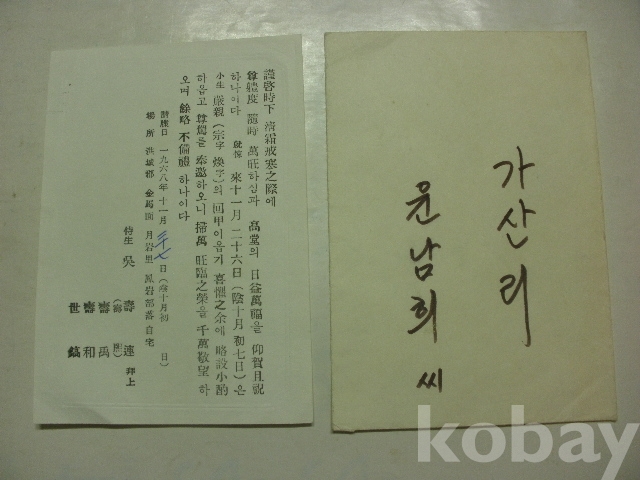 謹啓時下 淸霜戒寒之際에
尊體度 隨時 萬旺하심과 高堂의 日益萬福을 仰賀且祝
하나이다 就悚 來十一月二十六日(陰十月初七日)은
小生 嚴親(宗字 煥字)의 回甲이옵기 喜懼之余에 略設小酌
하옵고 尊駕을 奉邀하오니 掃萬 旺臨之榮을 千萬敬望하
오며 餘略 不備禮 하나이다
請牒日 一九六八年 十一月 日(陰十月初 日)
場所 洪城郡 金馬面 月岩里 鳳岩部落自宅
侍生 吳 壽 連 拜上
壽 禹
壽 和
世 鎬
가산리
윤남희 씨
kobay